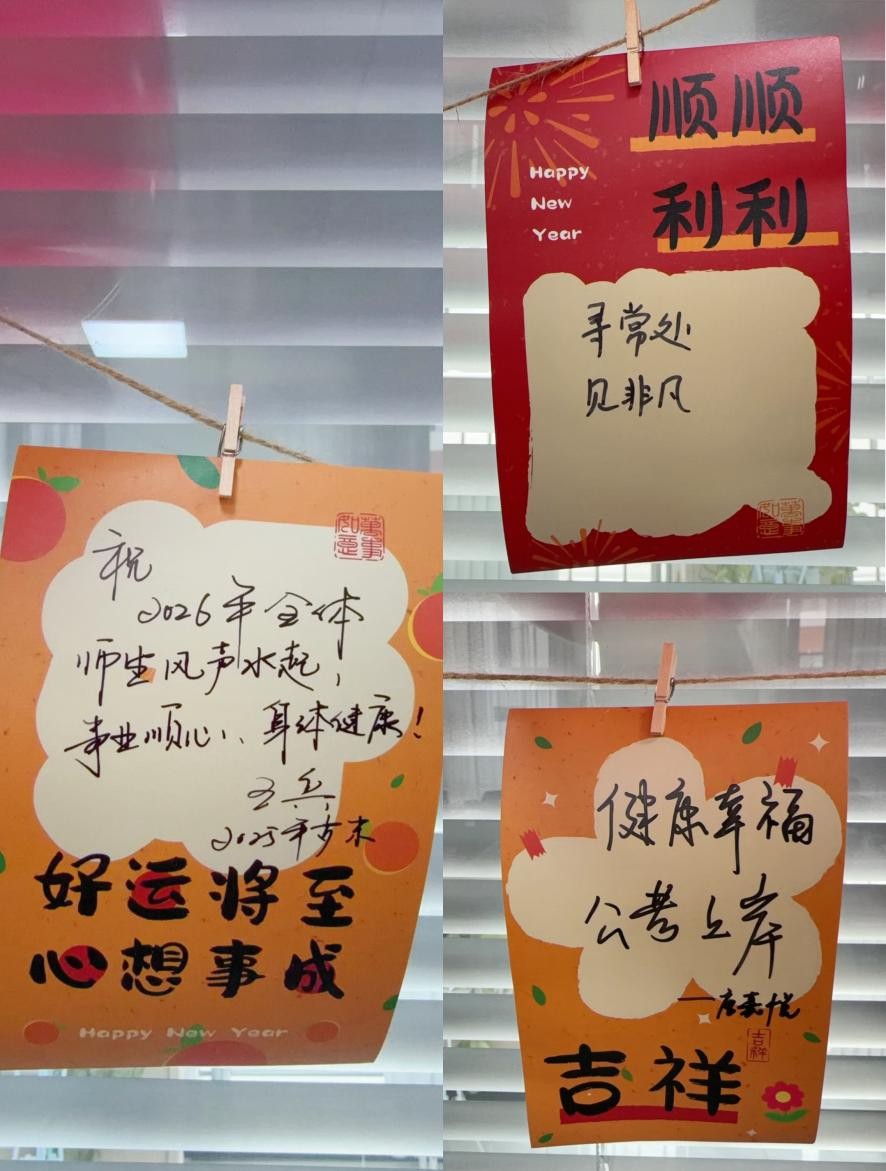 祝
2026年全体
师生风声水起,
事业顺心、身体健康!
2025年岁末
好运将至
心想事成
Happy New Year
萬事如意
顺顺
利利
Happy
New
Year
寻常处
见非凡
萬事如意
健康幸福
公考上岸
吉祥
吉祥